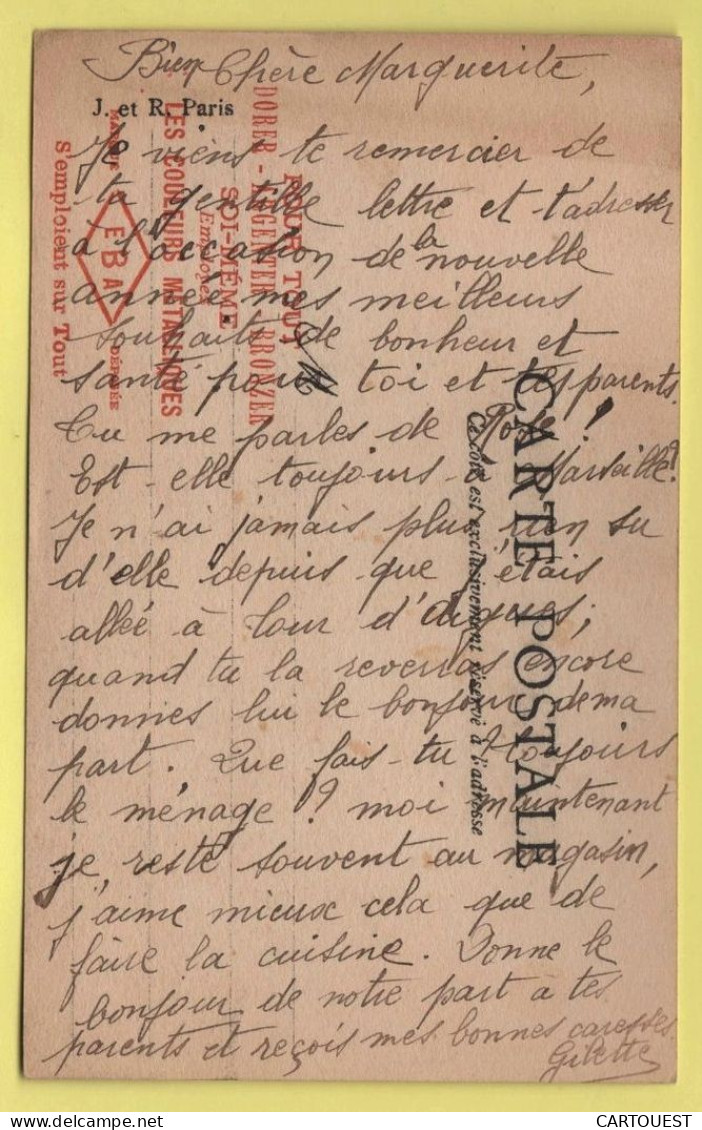 Bien Chère Marguerite,
J. et R. Paris
Je viens te remercier de
ta gentille lettre et t'adresser
à l'occasion de la nouvelle
année mes meilleurs
souhaits de bonheur et
santé pour toi et tes parents.
Tu me parles de Rose!
Est-elle toujours à Marseille?
Je n'ai jamais plus rien su
d'elle depuis que j'étais
allée à Tour d'Aigues;
quand tu la reverras encore
donnes lui le bonjour de ma
part. Que fais-tu? toujours
le ménage? moi maintenant
je reste souvent au magasin,
j'aime mieux cela que de
faire la cuisine. Donne le
bonjour de notre part a tes
parents et reçois mes bonnes caresses.
Gilette
POUR TOUT
DORER - ARGENTER - BRONZER
SOI-MÊME
Employez
LES COULEURS MÉTALLIQUES
MARQUE EBA DÉPOSÉE
S'emploient sur Tout
CARTE POSTALE
Ce côté est exclusivement réservé à l'adresse
CARTOUEST